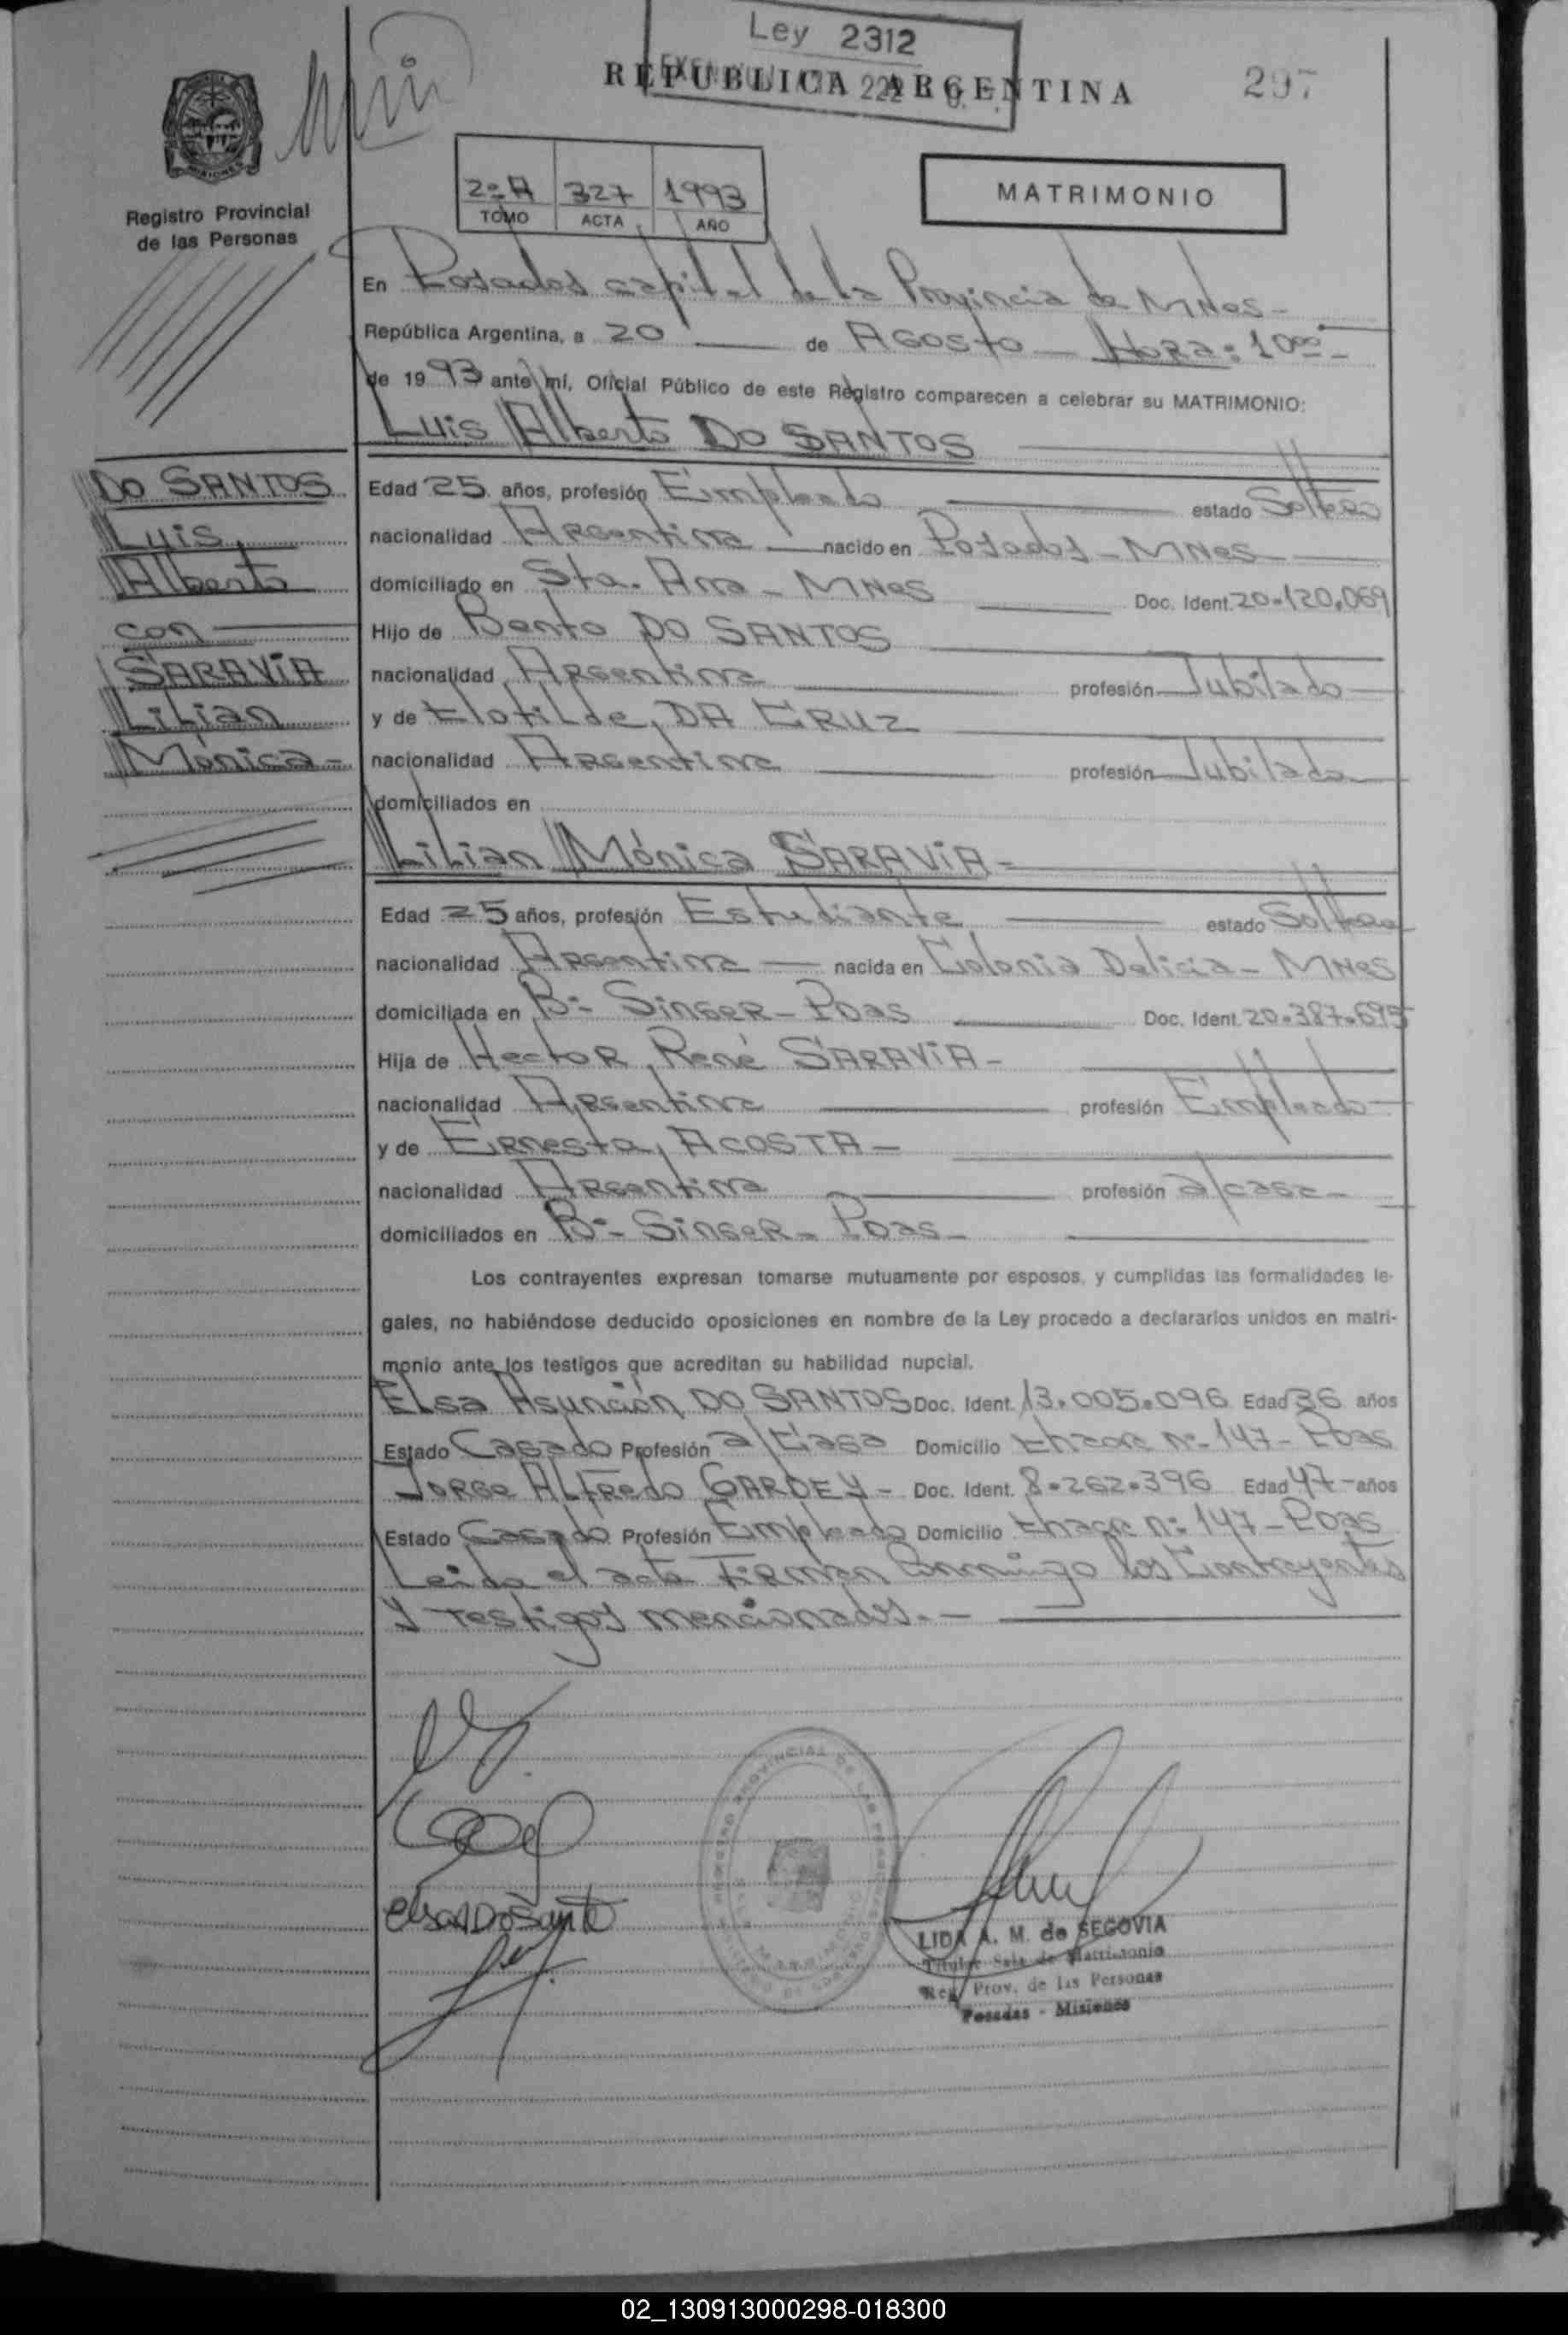 Ley 2312
REPUBLICA ARGENTINA
297
Registro Provincial
de las Personas
2º A 327 1993
TOMO ACTA AÑO
MATRIMONIO
En Posadas capital de la Provincia de Mnes-
República Argentina, a 20 de Agosto Hora: 10⁰⁰-
de 1993 ante mí, Oficial Público de este Registro comparecen a celebrar su MATRIMONIO:
Luis Alberto DO SANTOS
DO SANTOS
Luis
Alberto
con
SARAVIA
Lilian
Mónica-
Edad 25 años, profesión Empleado estado Soltero
nacionalidad Argentina nacido en Posadas - Mnes
domiciliado en Sta. Ana - Mnes Doc. Ident. 20.120.069
Hijo de Bento DO SANTOS
nacionalidad Argentina profesión Jubilado
y de Clotilde, DA CRUZ
nacionalidad Argentina profesión Jubilada
domiciliados en
Lilian Mónica SARAVIA-
Edad 25 años, profesión Estudiante estado Soltera
nacionalidad Argentina nacida en Colonia Delicia - Mnes
domiciliada en Bº- Singer - Pdas Doc. Ident. 20.387.695
Hija de Hector, René SARAVIA-
nacionalidad Argentina profesión Empleado
y de Ernesta, ACOSTA-
nacionalidad Argentina profesión a/casa-
domiciliados en Bº- Singer - Pdas-
Los contrayentes expresan tomarse mutuamente por esposos, y cumplidas las formalidades le-
gales, no habiéndose deducido oposiciones en nombre de la Ley procedo a declararlos unidos en matri-
monio ante los testigos que acreditan su habilidad nupcial.
Elsa Asunción, DO SANTOS Doc. Ident. 13.005.096 Edad 36 años
Estado Casado Profesión a/Casa Domicilio nº 147 - Pdas
Jorge Alfredo GARDEY- Doc. Ident. 8.262.396 Edad 47 años
Estado Casado Profesión Empleado Domicilio nº 147 - Pdas
Leida el acta Firman Conmigo los Contrayentes
y Testigos mencionados.-
LIDA A. M. de SEGOVIA
Titular Sala de Matrimonio
Reg. Prov. de las Personas
Posadas - Misiones
02_130913000298-018300